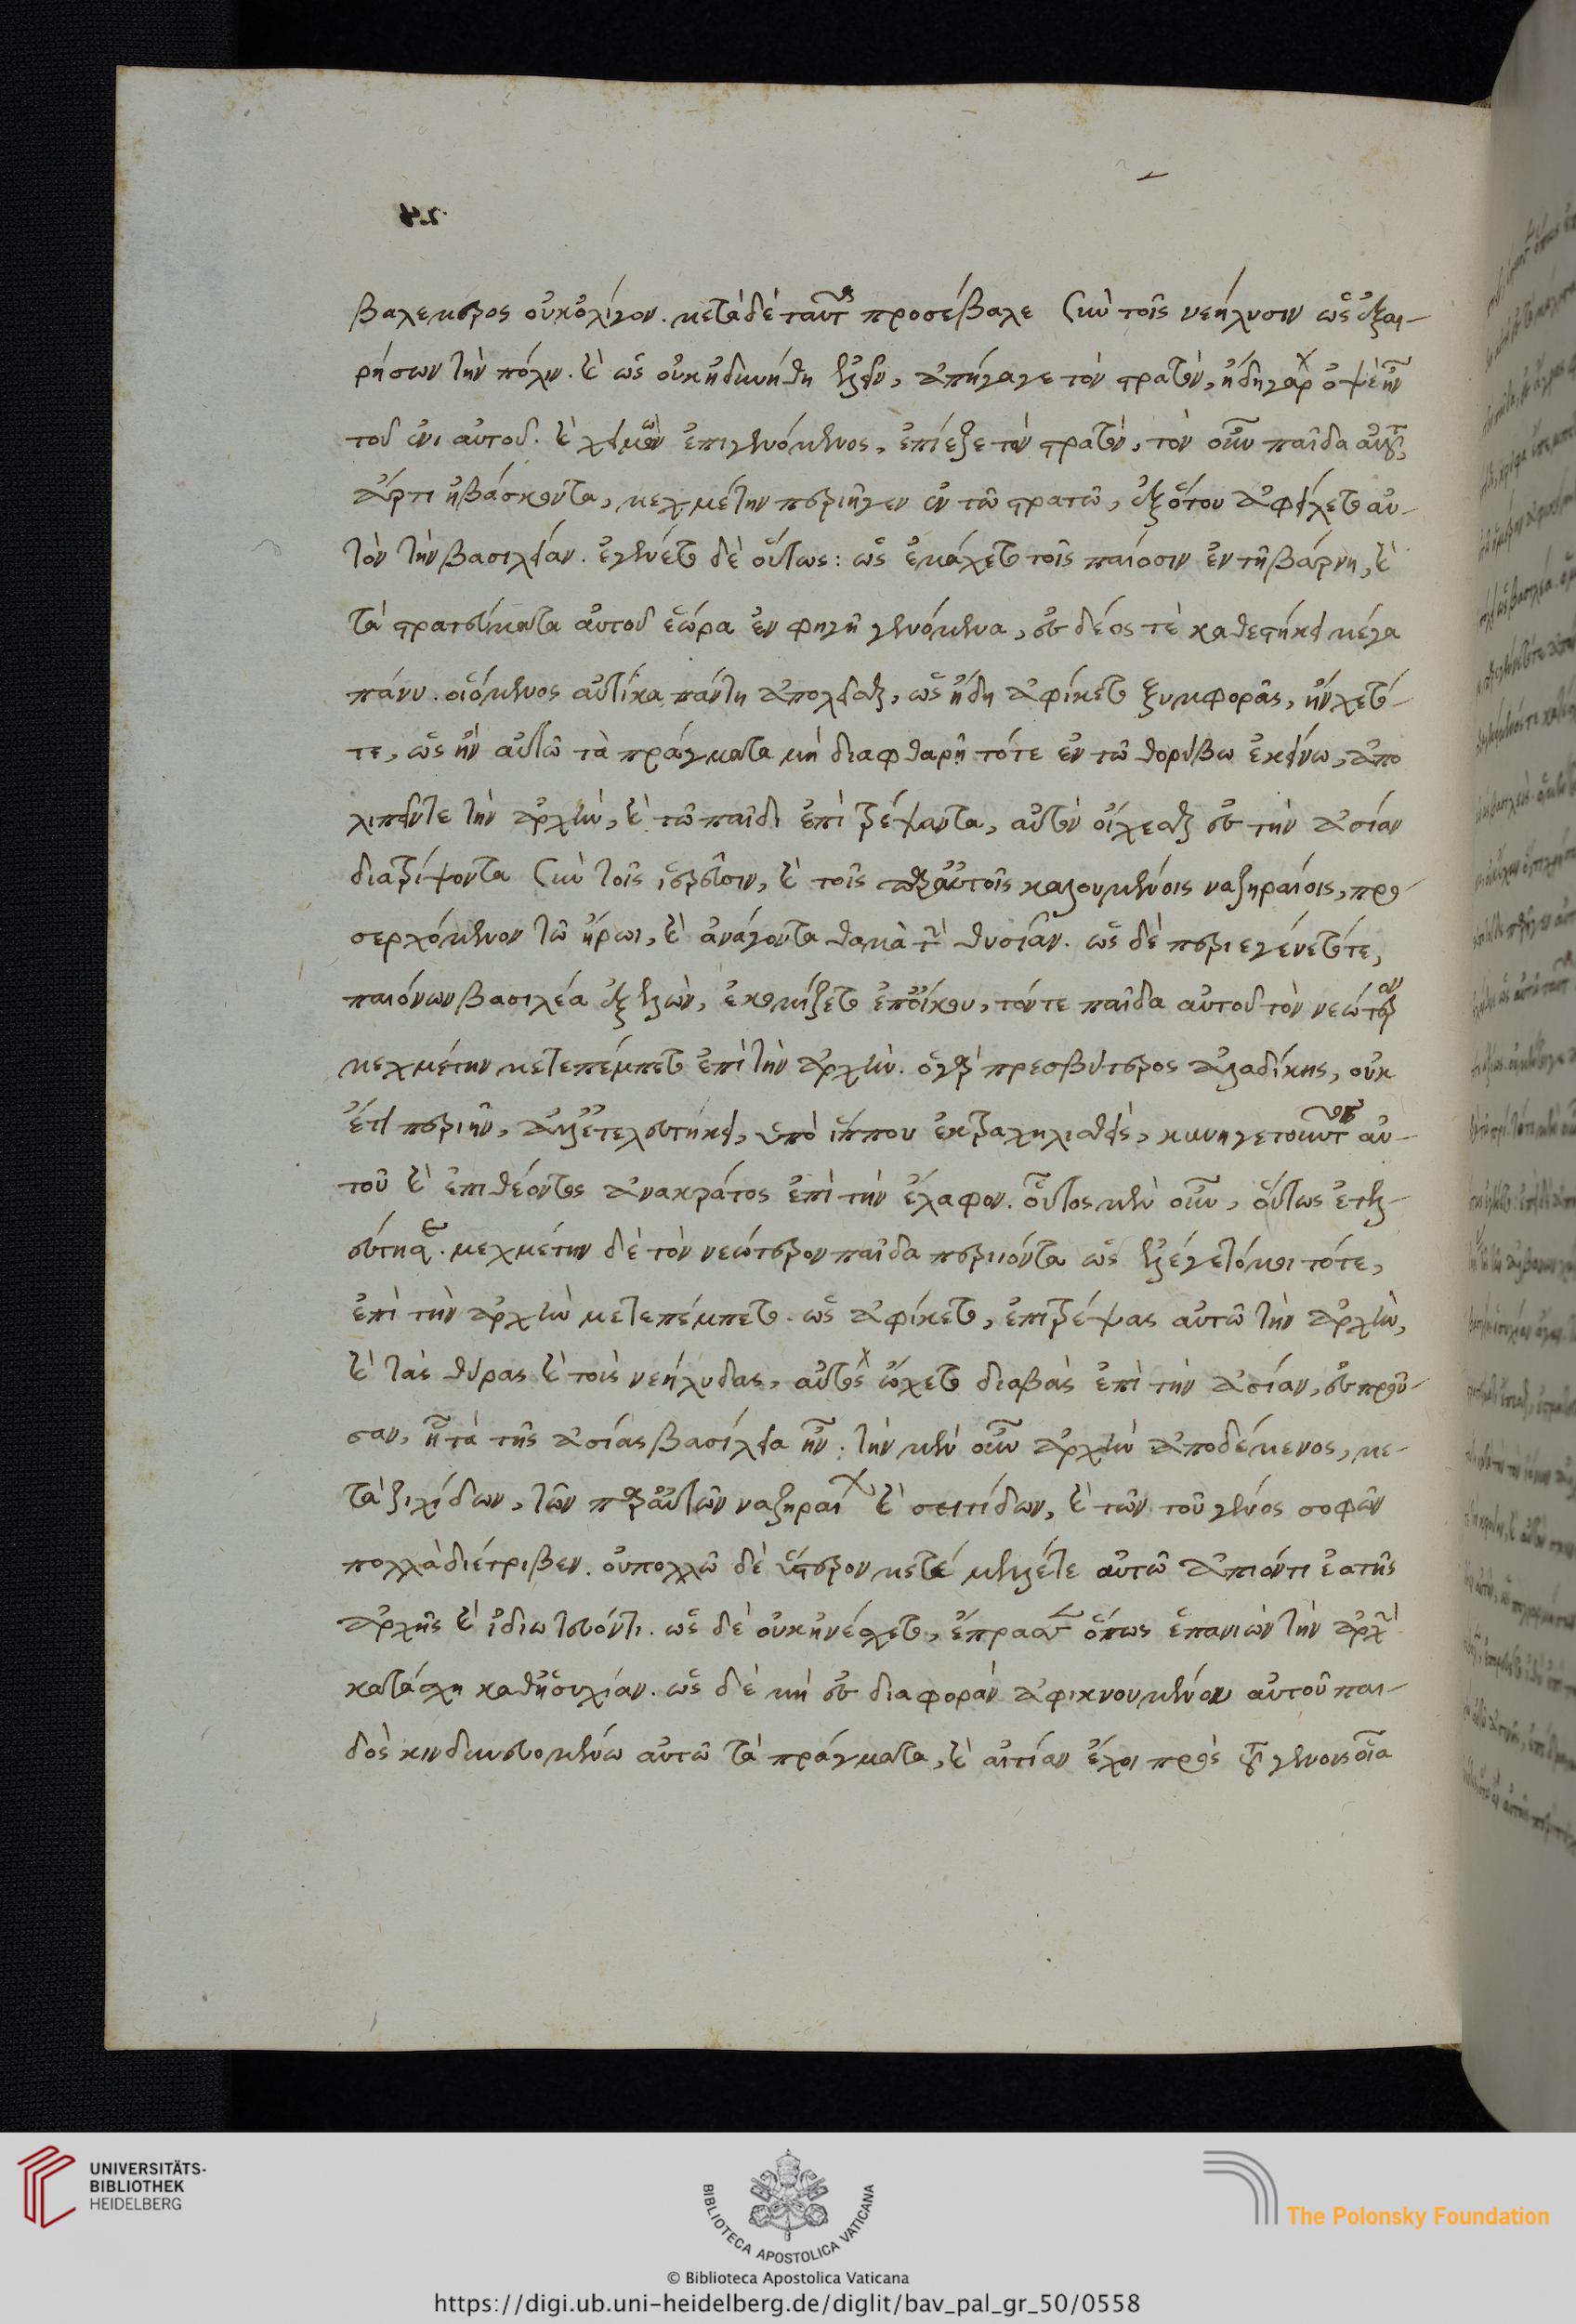 24
βαλε μέρος οὐκ ὀλίγον. μετὰ δὲ ταῦτα προσέβαλε σὺν τοῖς νεήλυσιν ὡς ἐξαι-
ρήσων τὴν πόλιν. καὶ ὡς οὐκ ἠδυνήθη ἑλεῖν, ἀπήγαγε τὸν στρατόν, ἤδη γὰρ ὀψὲ ἦν
τοῦ ἐνιαυτοῦ. καὶ χειμὼν ἐπιγενόμενος, ἐπίεζε τὸν στρατόν, τὸν οὖν παῖδα αὐτοῦ,
ἄρτι ἡβάσκοντα, μεχμέτην περιῆγεν ἐν τῷ στρατῷ, ἐξ ὅτου ἀφείλετο αὐ-
τὸν τὴν βασιλείαν. ἐγένετο δὲ οὕτως: ὡς ἐμάχετο τοῖς παίοσιν ἐν τῇ βάρνῃ, καὶ
τὰ στρατεύματα αὐτοῦ ἑώρα ἐν φυγῇ γενόμενα, εἰς δέος τὲ καθεστήκει μέγα
πάνυ. οἰόμενος αὐτίκα πάντῃ ἀπολεῖσθαι, ὡς ἤδη ἀφίκετο ξυμφορᾶς, ηὔχετό
τε, ὡς ἢν αὐτῷ τὰ πράγματα μὴ διαφθαρῇ τότε ἐν τῷ θορύβῳ ἐκείνῳ, ἀπο
λιπόντα τὴν ἀρχὴν, καὶ τῷ παιδὶ ἐπιτρέψαντα, αὐτὸν οἴχεσθαι εἰς τὴν ἀσίαν
διατρίψοντα σὺν τοῖς ἱερεῦσιν, καὶ τοῖς παρ᾽ αὐτοῖς καλουμένοις ναζηραίοις, προ
σερχόμενον τῷ ἥρωι, καὶ ἀνάγοντα θαμὰ τὴν θυσίαν. ὡς δὲ περιεγένετό τε,
παιόνων βασιλέα ἐξελὼν, ἐκομίζετο ἐπ᾽ οἴκου, τόν τε παῖδα αὐτοῦ τὸν νεώτερον
μεχμέτην μετεπέμπετο ἐπὶ τὴν ἀρχὴν. ὁ γὰρ πρεσβύτερος ἀλαδίνης, οὐκ
έτι περιῆν, ἀλλ᾽ ἐτελευτήκει, ὑπὸ ἵππου ἐκτραχηλισθεὶς, κυνηγετοῦντος αὐ-
τοῦ καὶ ἐπιθέοντος ἀνακράτος ἐπὶ τὴν ἔλαφον. οὗτος μὲν οὖν, οὕτως ἐτελ-
εύτησε. μεχμέτην δὲ τὸν νεώτερον παῖδα περιιόντα ὡς ἐλέγετό μοι τότε,
ἐπὶ τὴν ἀρχὴν μετεπέμπετο. ὡς ἀφίκετο, ἐπιτρέψας αὐτῷ τὴν ἀρχὴν,
καὶ τὰς θύρας καὶ τοὺς νεήλυδας, αὐτὸς ᾤχετο διαβὰς ἐπὶ τὴν ἀσίαν, εἰς προῦ-
σαν, ᾗ τὰ τῆς ἀσίας βασίλεια ἦν. τὴν μὲν οὖν ἀρχὴν ἀποδέμενος, με-
τὰ ζιχίδων, τῶν παρ᾽ αὐτῶν ναζηραίων καὶ σειτίδων, καὶ τῶν τοῦ γένος σοφῶν
πολλὰ διέτριβεν. οὐ πολλῷ δὲ ὕστερον μετέμελέ τε αὐτῷ ἀπιόντι ἐα τῆς
ἀρχῆς καὶ ἰδιωτεύοντι. ὡς δὲ οὐκ ἠνέσχετο, ἔπρασσεν ὅπως ἐπανιὼν τὴν ἀρχὴν
κατάσχῃ καθ᾽ ἡσυχίαν. ὡς δὲ μὴ εἰς διαφορὰν ἀφικνουμένου αὐτοῦ παι-
δὸς κινδυνευομένῳ αὐτῷ τὰ πράγματα, καὶ αἰτίαν ἔχοι πρὸς τοῦ γένους οἷα
UNIVERSITÄTS-
BIBLIOTHEK
HEIDELBERG
BIBLIOTECA APOSTOLICA VATICANA
The Polonsky Foundation
© Biblioteca Apostolica Vaticana
https://digi.ub.uni-heidelberg.de/diglit/bav_pal_gr_50/0558